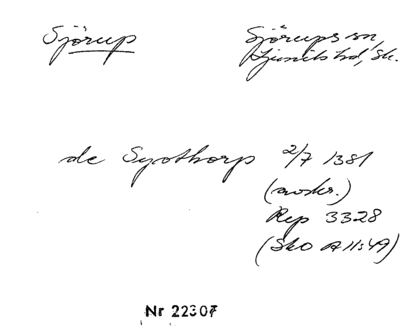 Sjörup Sjörups sn,
Ljunits hd, Sk.
de Syothorp 2/7 1381
(avskr.)
Rep 3328
(SkO A II:49)
Nr 22307